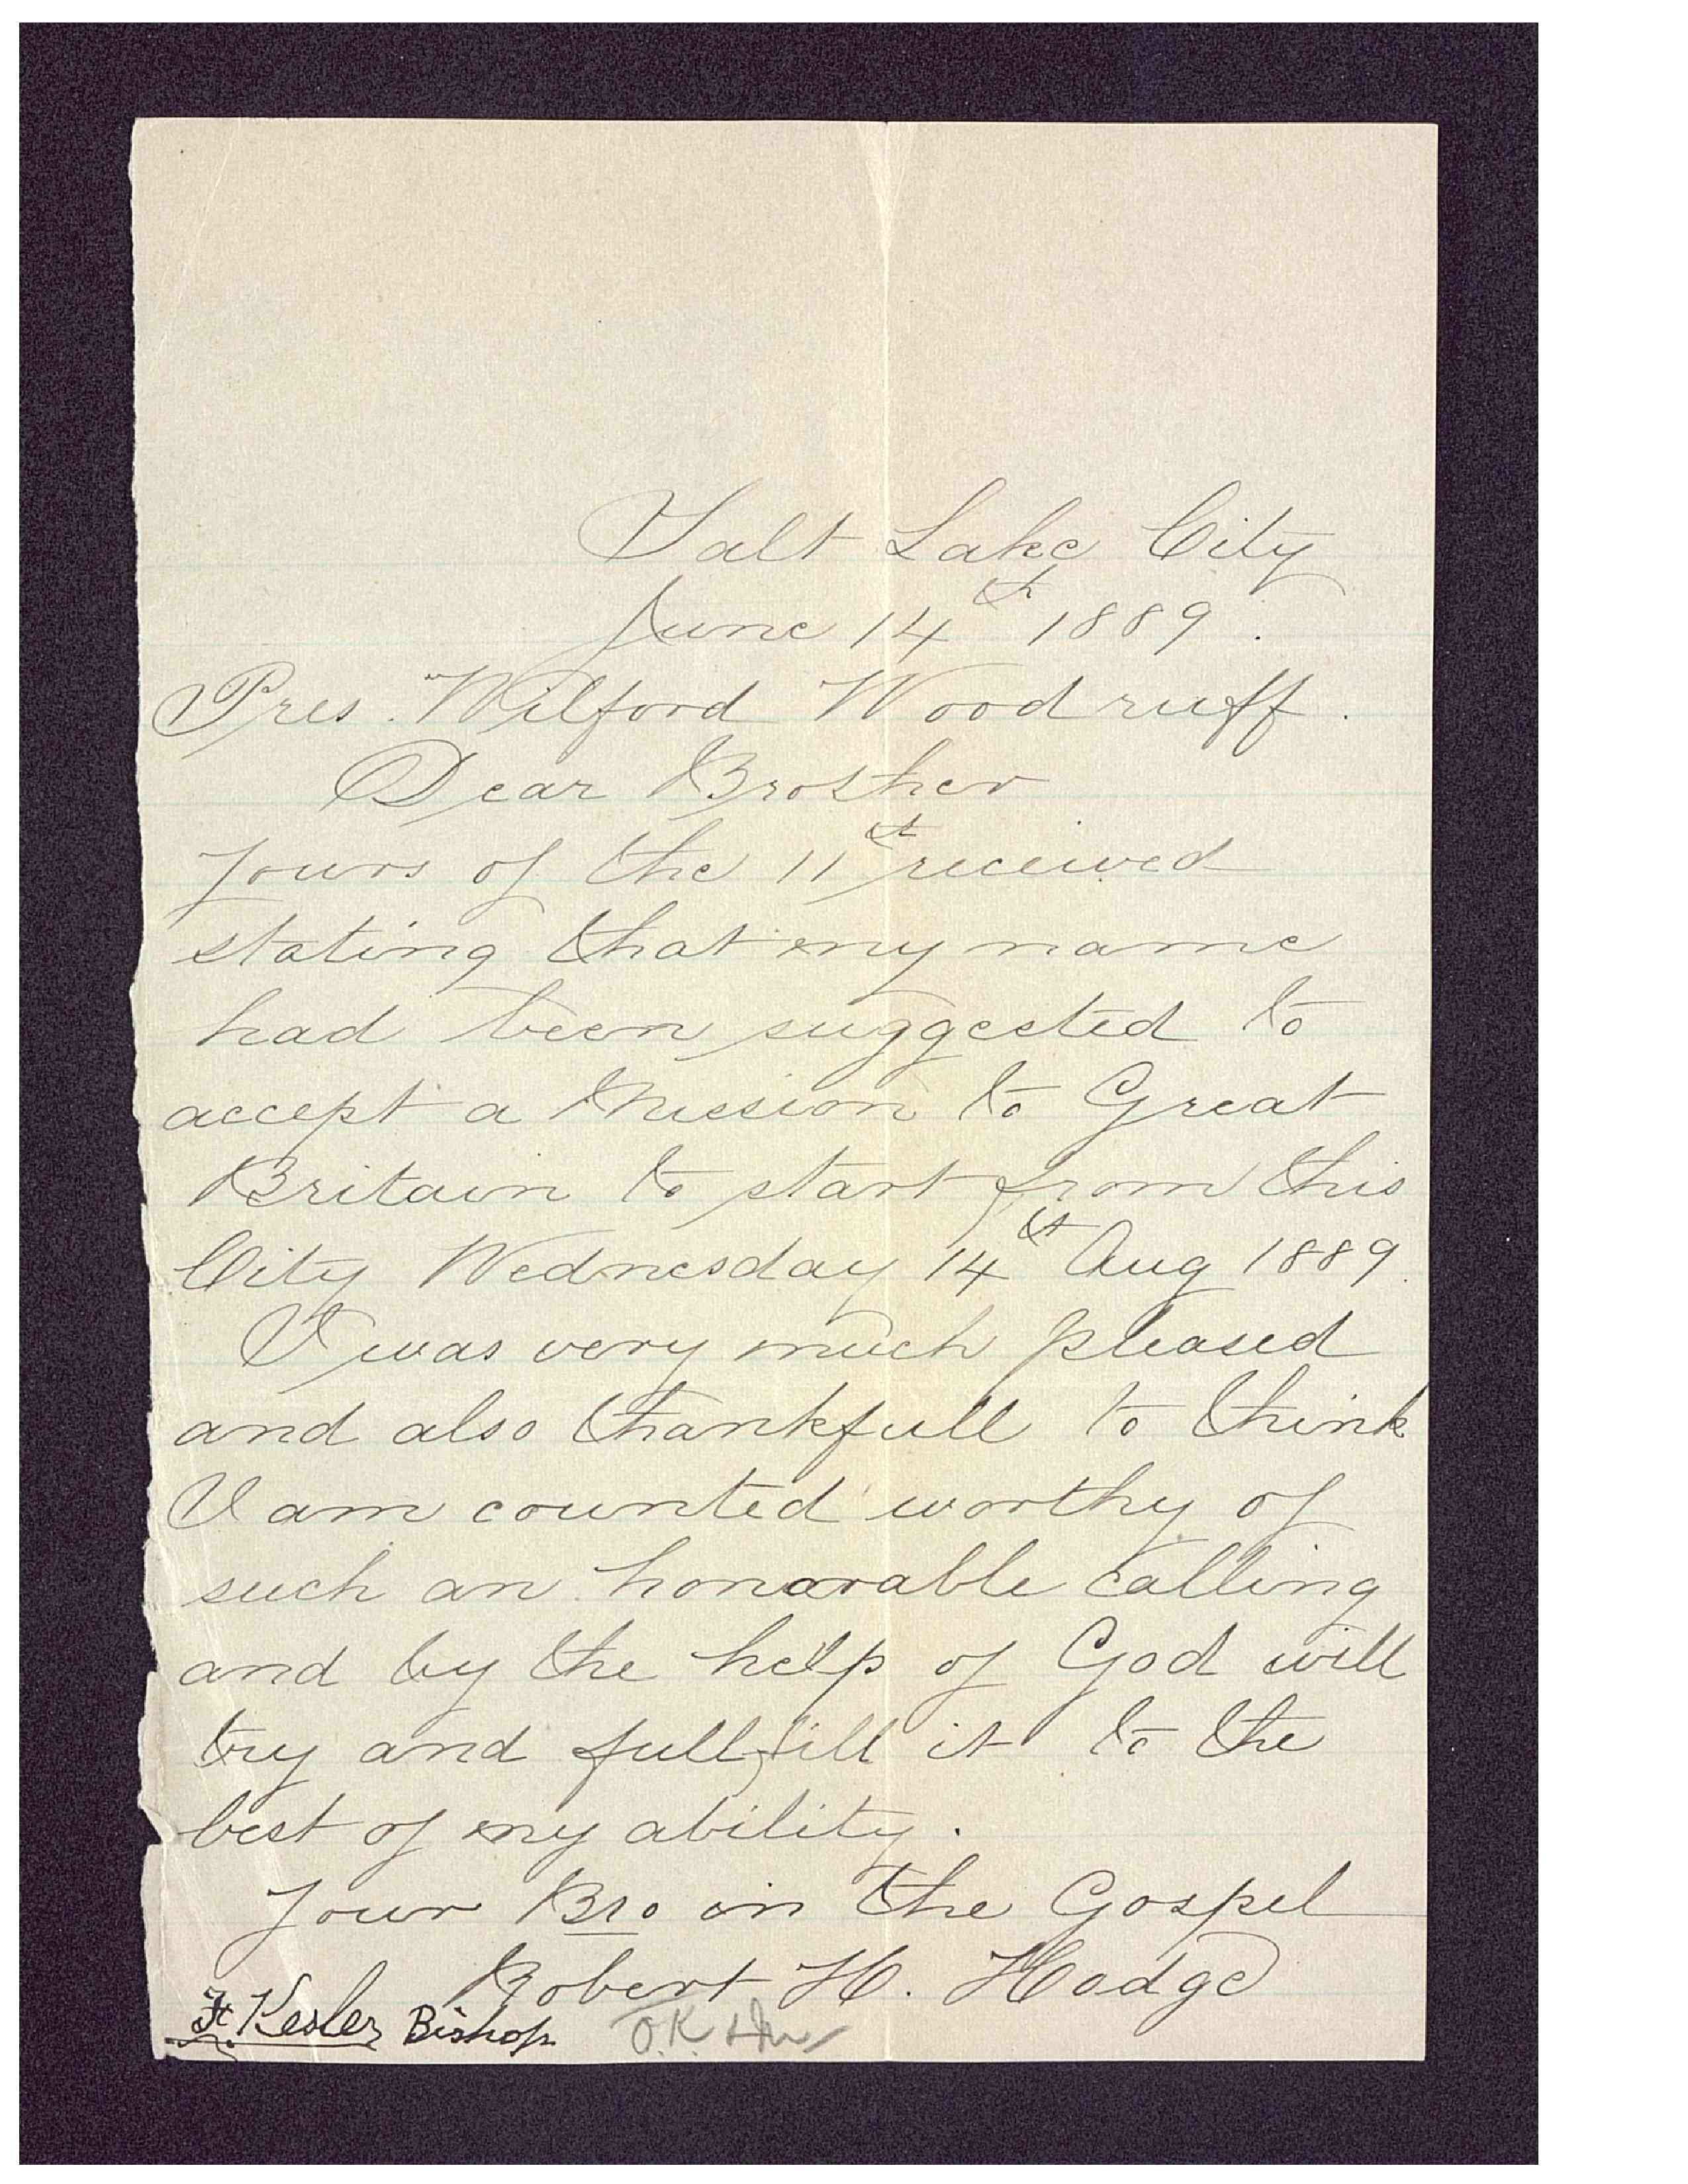 Salt Lake City
June 14th 1889.
Pres. Wilford Woodruff.
Dear Brother
Yours of the 11th received
stating that my name
had been suggested to
accept a Mission to Great
Britain to start from this
City Wednesday 14th Aug 1889.
I was very much pleased
and also thankfull to think
I am counted worthy of
such an honorable calling
and by the help of God will
try and fullfill it to the
best of my ability.
Your Bro in the Gospel
Robert H. Hodge
Kesler Bishop O.K.